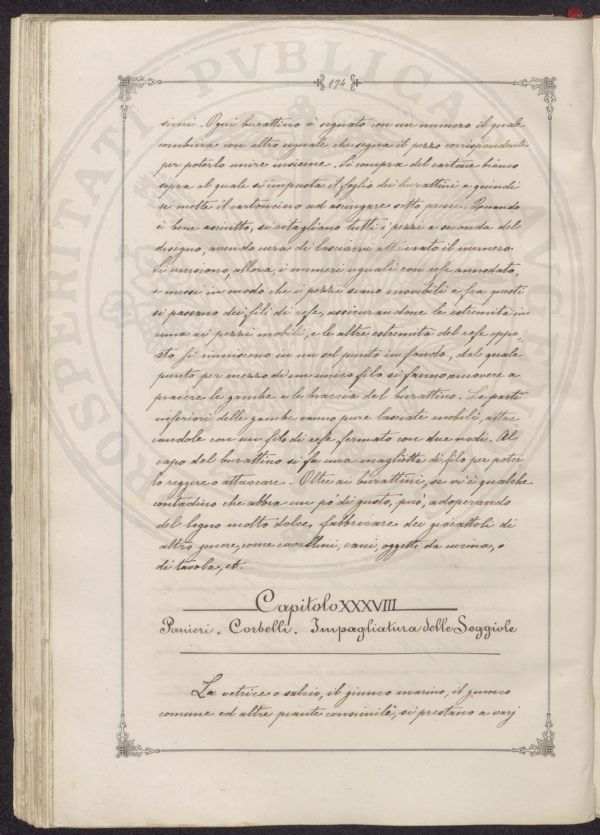 194
simi. Ogni burattino è segnato con un numero il quale
combina con altro uguale che segna il pezzo corrispondente
per poterlo unire insieme. Si compra del cartone bianco
sopra al quale si imposta il foglio dei burattini e quindi
si mette il cartoncino ad asciugare sotto presse. Quando
è bene asciutto, si ritagliano tutti i pezzi a seconda del
disegno, avendo cura di lasciarvi attaccato il numero.
Si uniscono, allora, i numeri uguali con refe annodato,
e messi in modo che i pezzi siano movibili e fra questi
si passano dei fili di refe, assicurandone le estremità in
cima ai pezzi mobili, e le altre estremità del refe oppo-
sto si riuniscono in un sol punto in fondo, dal quale
punto per mezzo di un unico filo si fanno muovere a
piacere le gambe e le braccia del burattino. Le parti
inferiori delle gambe vanno pure lasciate mobili, attac
candole con un filo di refe fermato con due nodi. Al
capo del burattino si fa una maglietta di filo per poter
lo reggere o attaccare. Oltre ai burattini, se vi è qualche
contadino che abbia un po' di gusto, può, adoperando
del legno molto dolce, fabbricare dei giocattoli di
altro genere, come cavallini, cani, oggetti da cucina, o
di tavola, et.
Capitolo XXXVIII
Panieri. Corbelli. Impagliatura delle Seggiole
La vetrice o salcio, il giunco marino, il giunco
comune ed altre piante consimili, si prestano a varj
PROSPERITATI PVBLICAE AVGENDAE